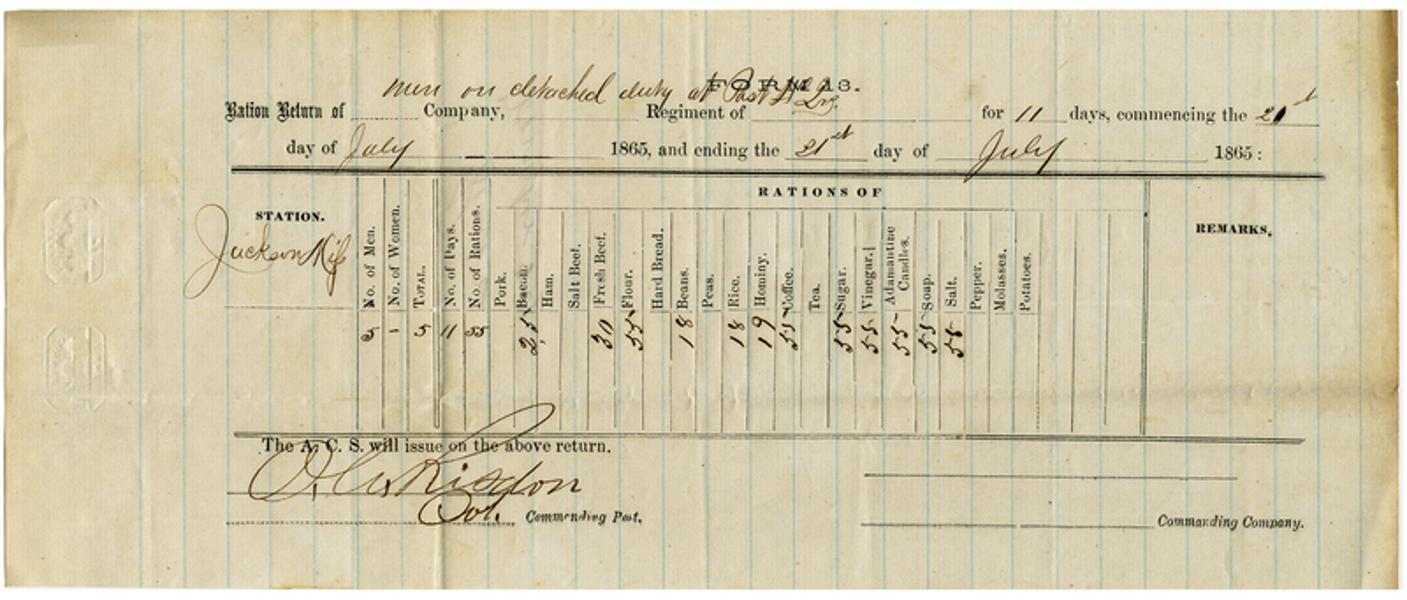 FORM 13.
men on detached duty at Post Hd Qrs.
Ration Return of Company, Regiment of for 11 days, commencing the 21st
day of July 1865, and ending the 31st day of July 1865:
RATIONS OF
STATION.
No. of Men.
No. of Women.
TOTAL.
No. of Days.
No. of Rations.
Pork.
Bacon.
Ham.
Salt Beef.
Fresh Beef.
Flour.
Hard Bread.
Beans.
Peas.
Rice.
Hominy.
Coffee.
Tea.
Sugar.
Vinegar.
Adamantine Candles.
Soap.
Salt.
Pepper.
Molasses.
Potatoes.
REMARKS.
Jackson Miss
5 - 5 11 55 25 30 55 18 18 19 55 55 55 55 55 55
The A. C. S. will issue on the above return.
O. C. Risdon
Col. Commending Post.
Commanding Company.